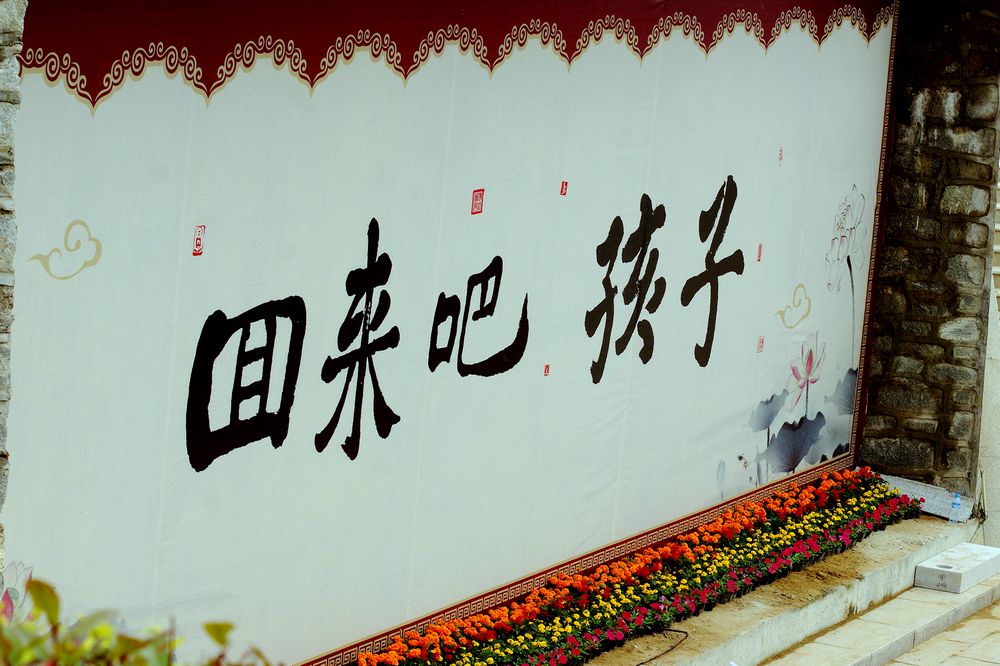 回来吧孩子